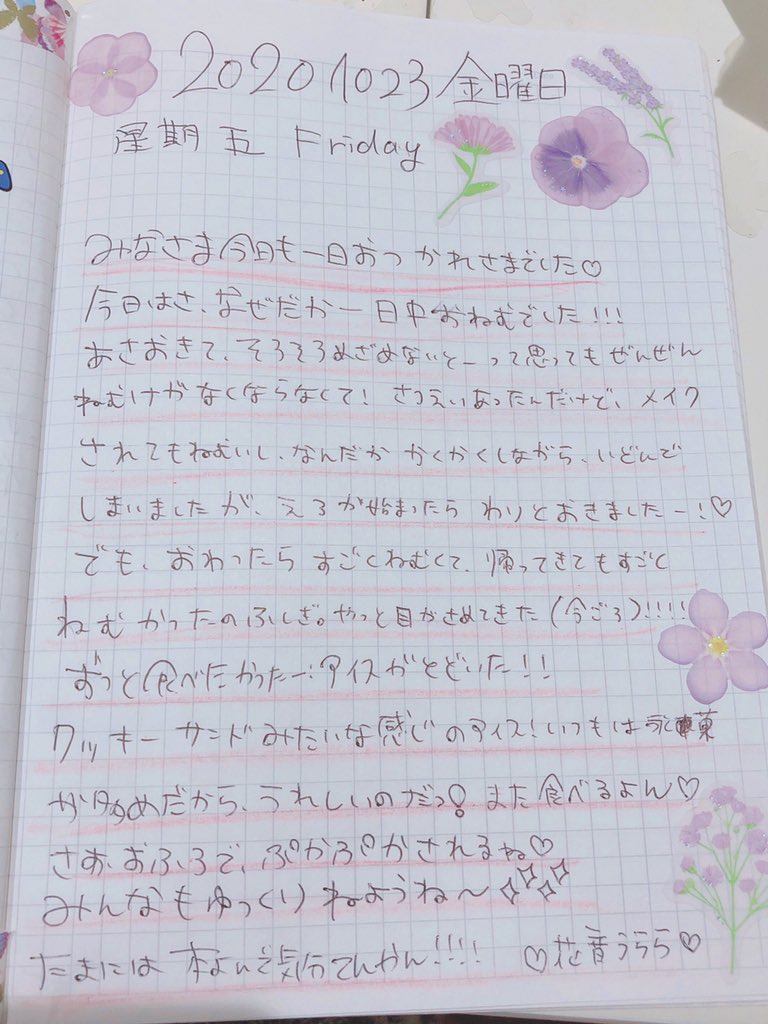 20201023 金曜日
星期五 Friday
みなさま今日も一日おつかれさまでした♡
今日はさ、なぜだか一日中おねむでした!!!
あさおきて、そろそろめざめないとーって思ってもぜんぜん
ねむけがなくならなくて! さつえいあったんだけど、メイク
されてもねむいし、なんだかかくかくしながら、いどんで
しまいましたが、えろが始まったらわりとおきましたー!♡
でも、おわったらすごくねむくて、帰ってきてもすごく
ねむかったのふしぎ。やっと目がさめてきた(今ごろ)!!!!
ずっと食べたかったー!アイスがとどいた!!
クッキーサンドみたいな感じのアイス!いつもは氷菓
が多めだから、うれしいのだっ! また食べるよん♡
さあ、おふろで、ぷかぷかされるね♡
みんなもゆっくりねようね〜
たまには 本よいで気分てんかん!!!! ♡花音うらら♡